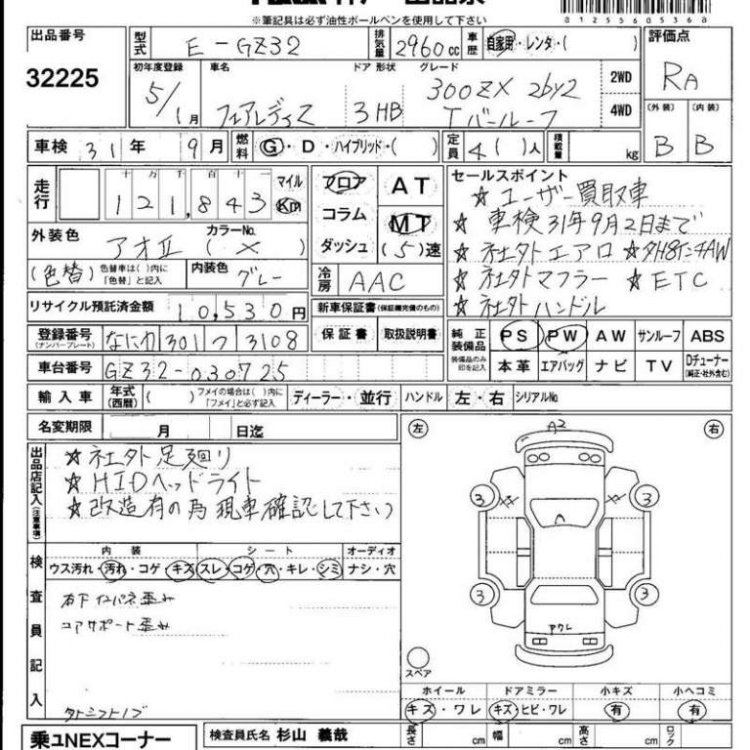 ※筆記具は必ず油性ボールペンを使用して下さい
0125560536●
出品番号 32225
型式 E-GZ32 排気量 2960cc 車歴 自家用・レンタ・( ) 評価点 RA
初年度登録 5/1月 車名 フェアレディZ ドア 形状 3HB グレード 300ZX 2by2 Tバールーフ 2WD 4WD
(外装) B (内装) B
車検 31年 9月 燃料 G・D・ハイブリッド・( ) 定員 4( )人 積載量 kg
走行 十万千百十一 121,843 マイル Km
フロア コラム ダッシュ AT MT (5)速
外装色 アオII カラーNo. (×)
(色替) 色替車は( )内に「色替」と記入 内装色 グレー
冷房 AAC
セールスポイント
☆ユーザー買取車
☆車検31年9月2日まで
☆社外エアロ ☆外18インチAW
☆社外マフラー ☆ETC
☆社外ハンドル
リサイクル預託済金額 10,530円
新車保証書(保証継続可能のもの)
保証書 取扱説明書
登録番号(ナンバープレート) なにわ 301 つ 3108
純正装備品 装備品のみ印を記入 PS PW AW サンルーフ ABS
本革 エアバッグ ナビ TV Dチューナー(純正・社外含む)
車台番号 GZ32-030725
輸入車 年式(西暦) ( ) フメイの場合は( )内に「フメイ」と必ず記入 ディーラー・並行 ハンドル 左・右 シリアルNo.
名変期限 月 日迄
出品店記入(注意事項)
☆社外足廻り
☆HIDヘッドライト
☆改造有の為現車確認して下さい
検査員記入
内装 シート オーディオ
ウス汚れ・汚れ・コゲ・キズ スレ・コゲ・穴・キレ・シミ ナシ・穴
右下インパネ歪み
コアサポート歪み
外ニシフトノブ
左 右
A2
3 XX XX 3
3 3
アクレ
スペア
ホイール ドアミラー 小キズ 小ヘコミ
キズ・ワレ キズ・ヒビ・ワレ 有 有
乗ユNEXコーナー
検査員氏名 杉山 義哉
長さ cm 幅 cm 高さ cm